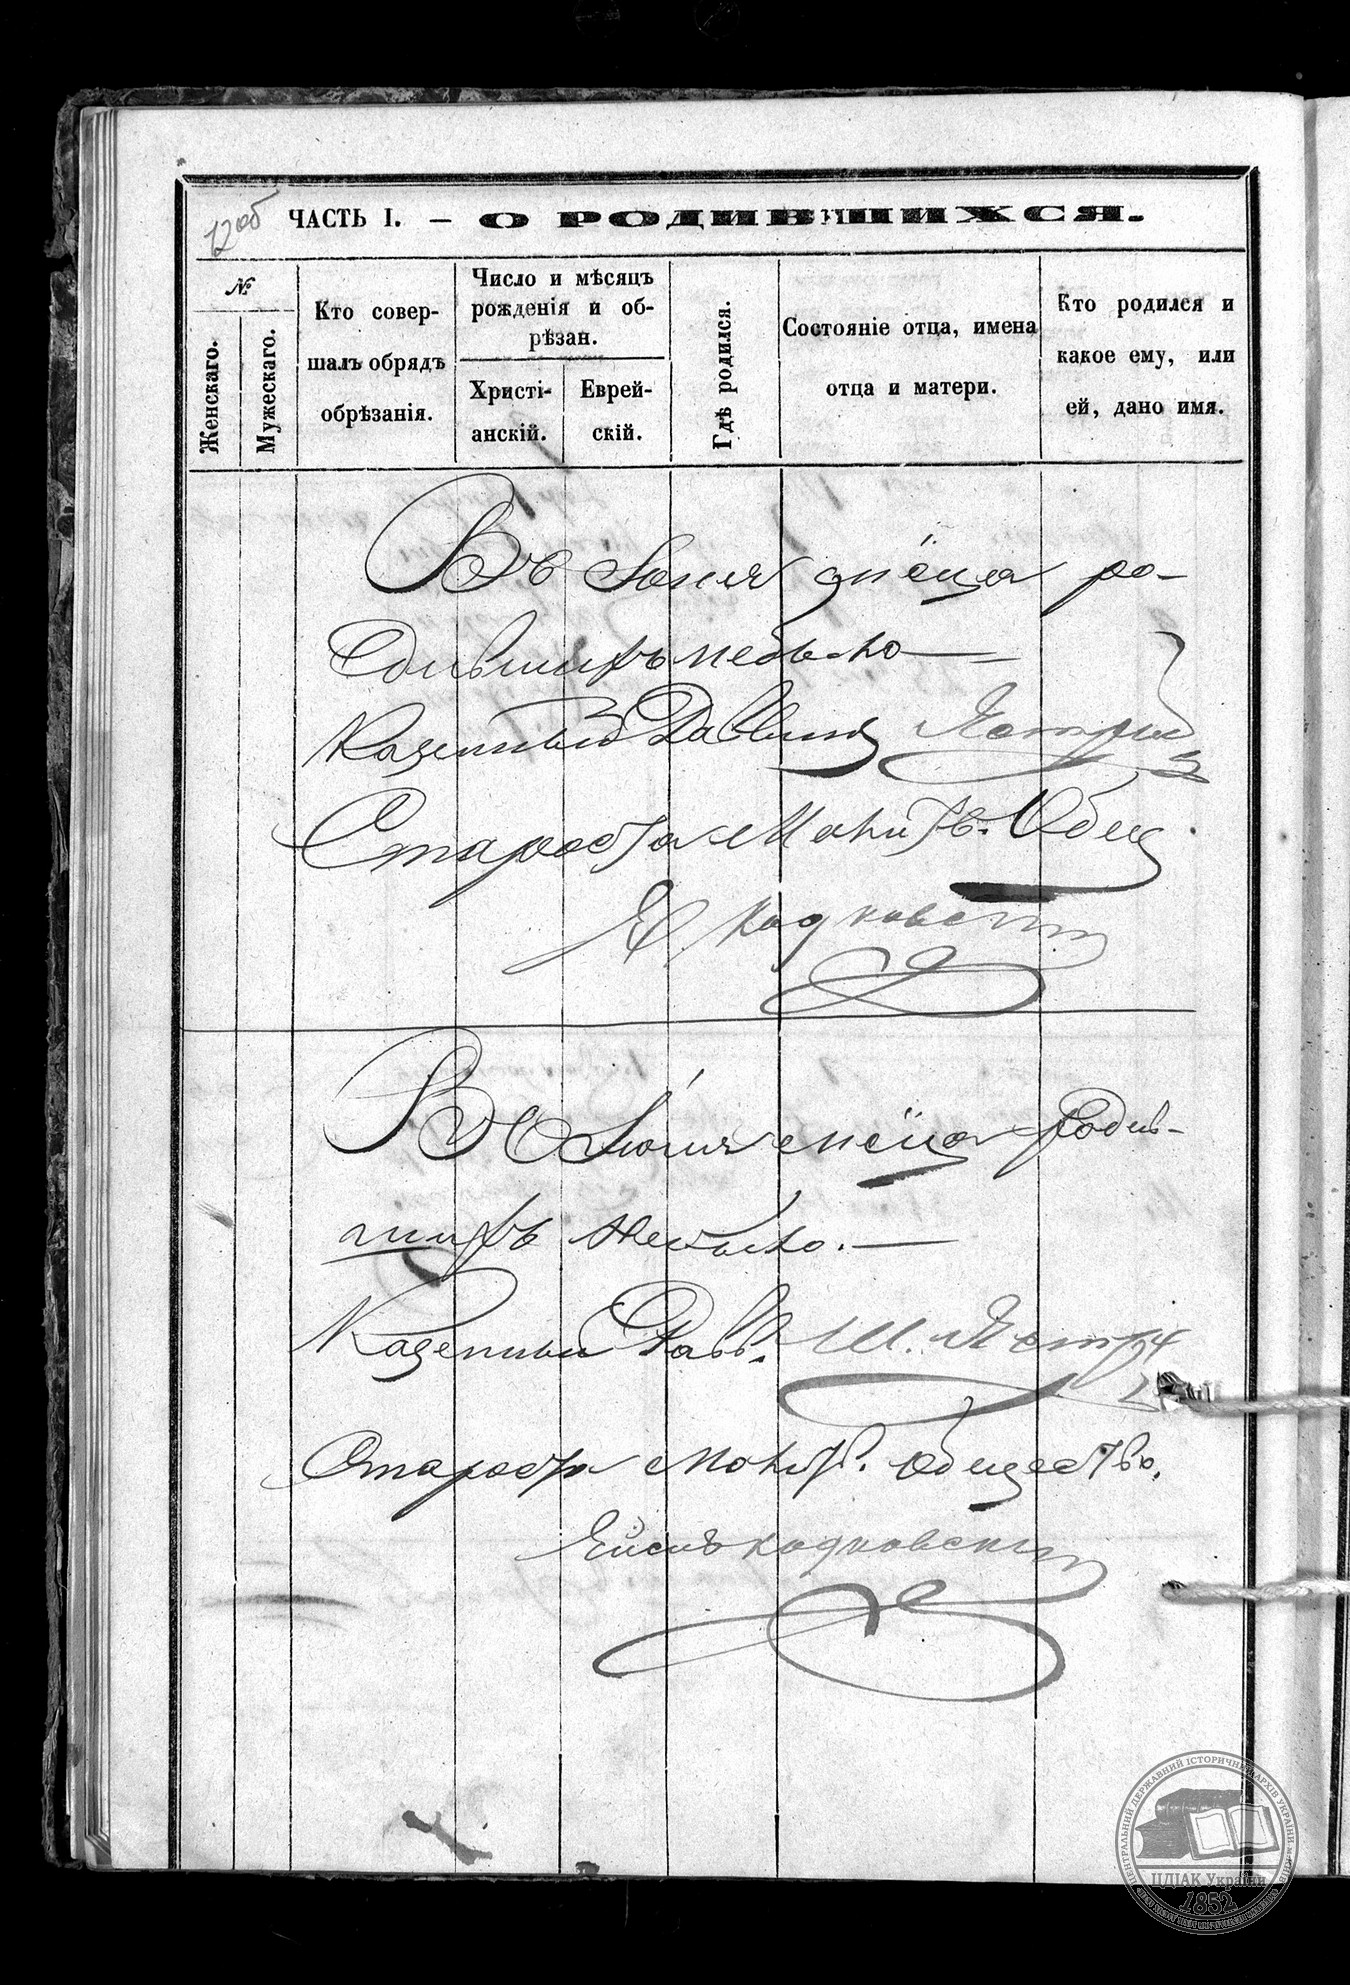 12об
ЧАСТЬ I. — О РОДИВШИХСЯ.
№
Женскаго.
Мужескаго.
Кто совер-
шалъ обрядъ
обрѣзанія.
Число и мѣсяцъ
рожденія и об-
рѣзан.
Христі-
анскій.
Еврей-
скій.
Гдѣ родился.
Состояніе отца, имена
отца и матери.
Кто родился и
какое ему, или
ей, дано имя.
Въ Іюня мѣсяца ро-
дившихъ небыло —
Казенный Раввинъ
Староста Молитв. Общ
Въ Іюля мѣсяца родив-
шихъ небыло. —
Казенный Равв. Ш.
Староста Молитв. Общество.
ЦЕНТРАЛЬНИЙ ДЕРЖАВНИЙ ІСТОРИЧНИЙ АРХІВ УКРАЇНИ, м. КИЇВ
ЦДІАК України
1852